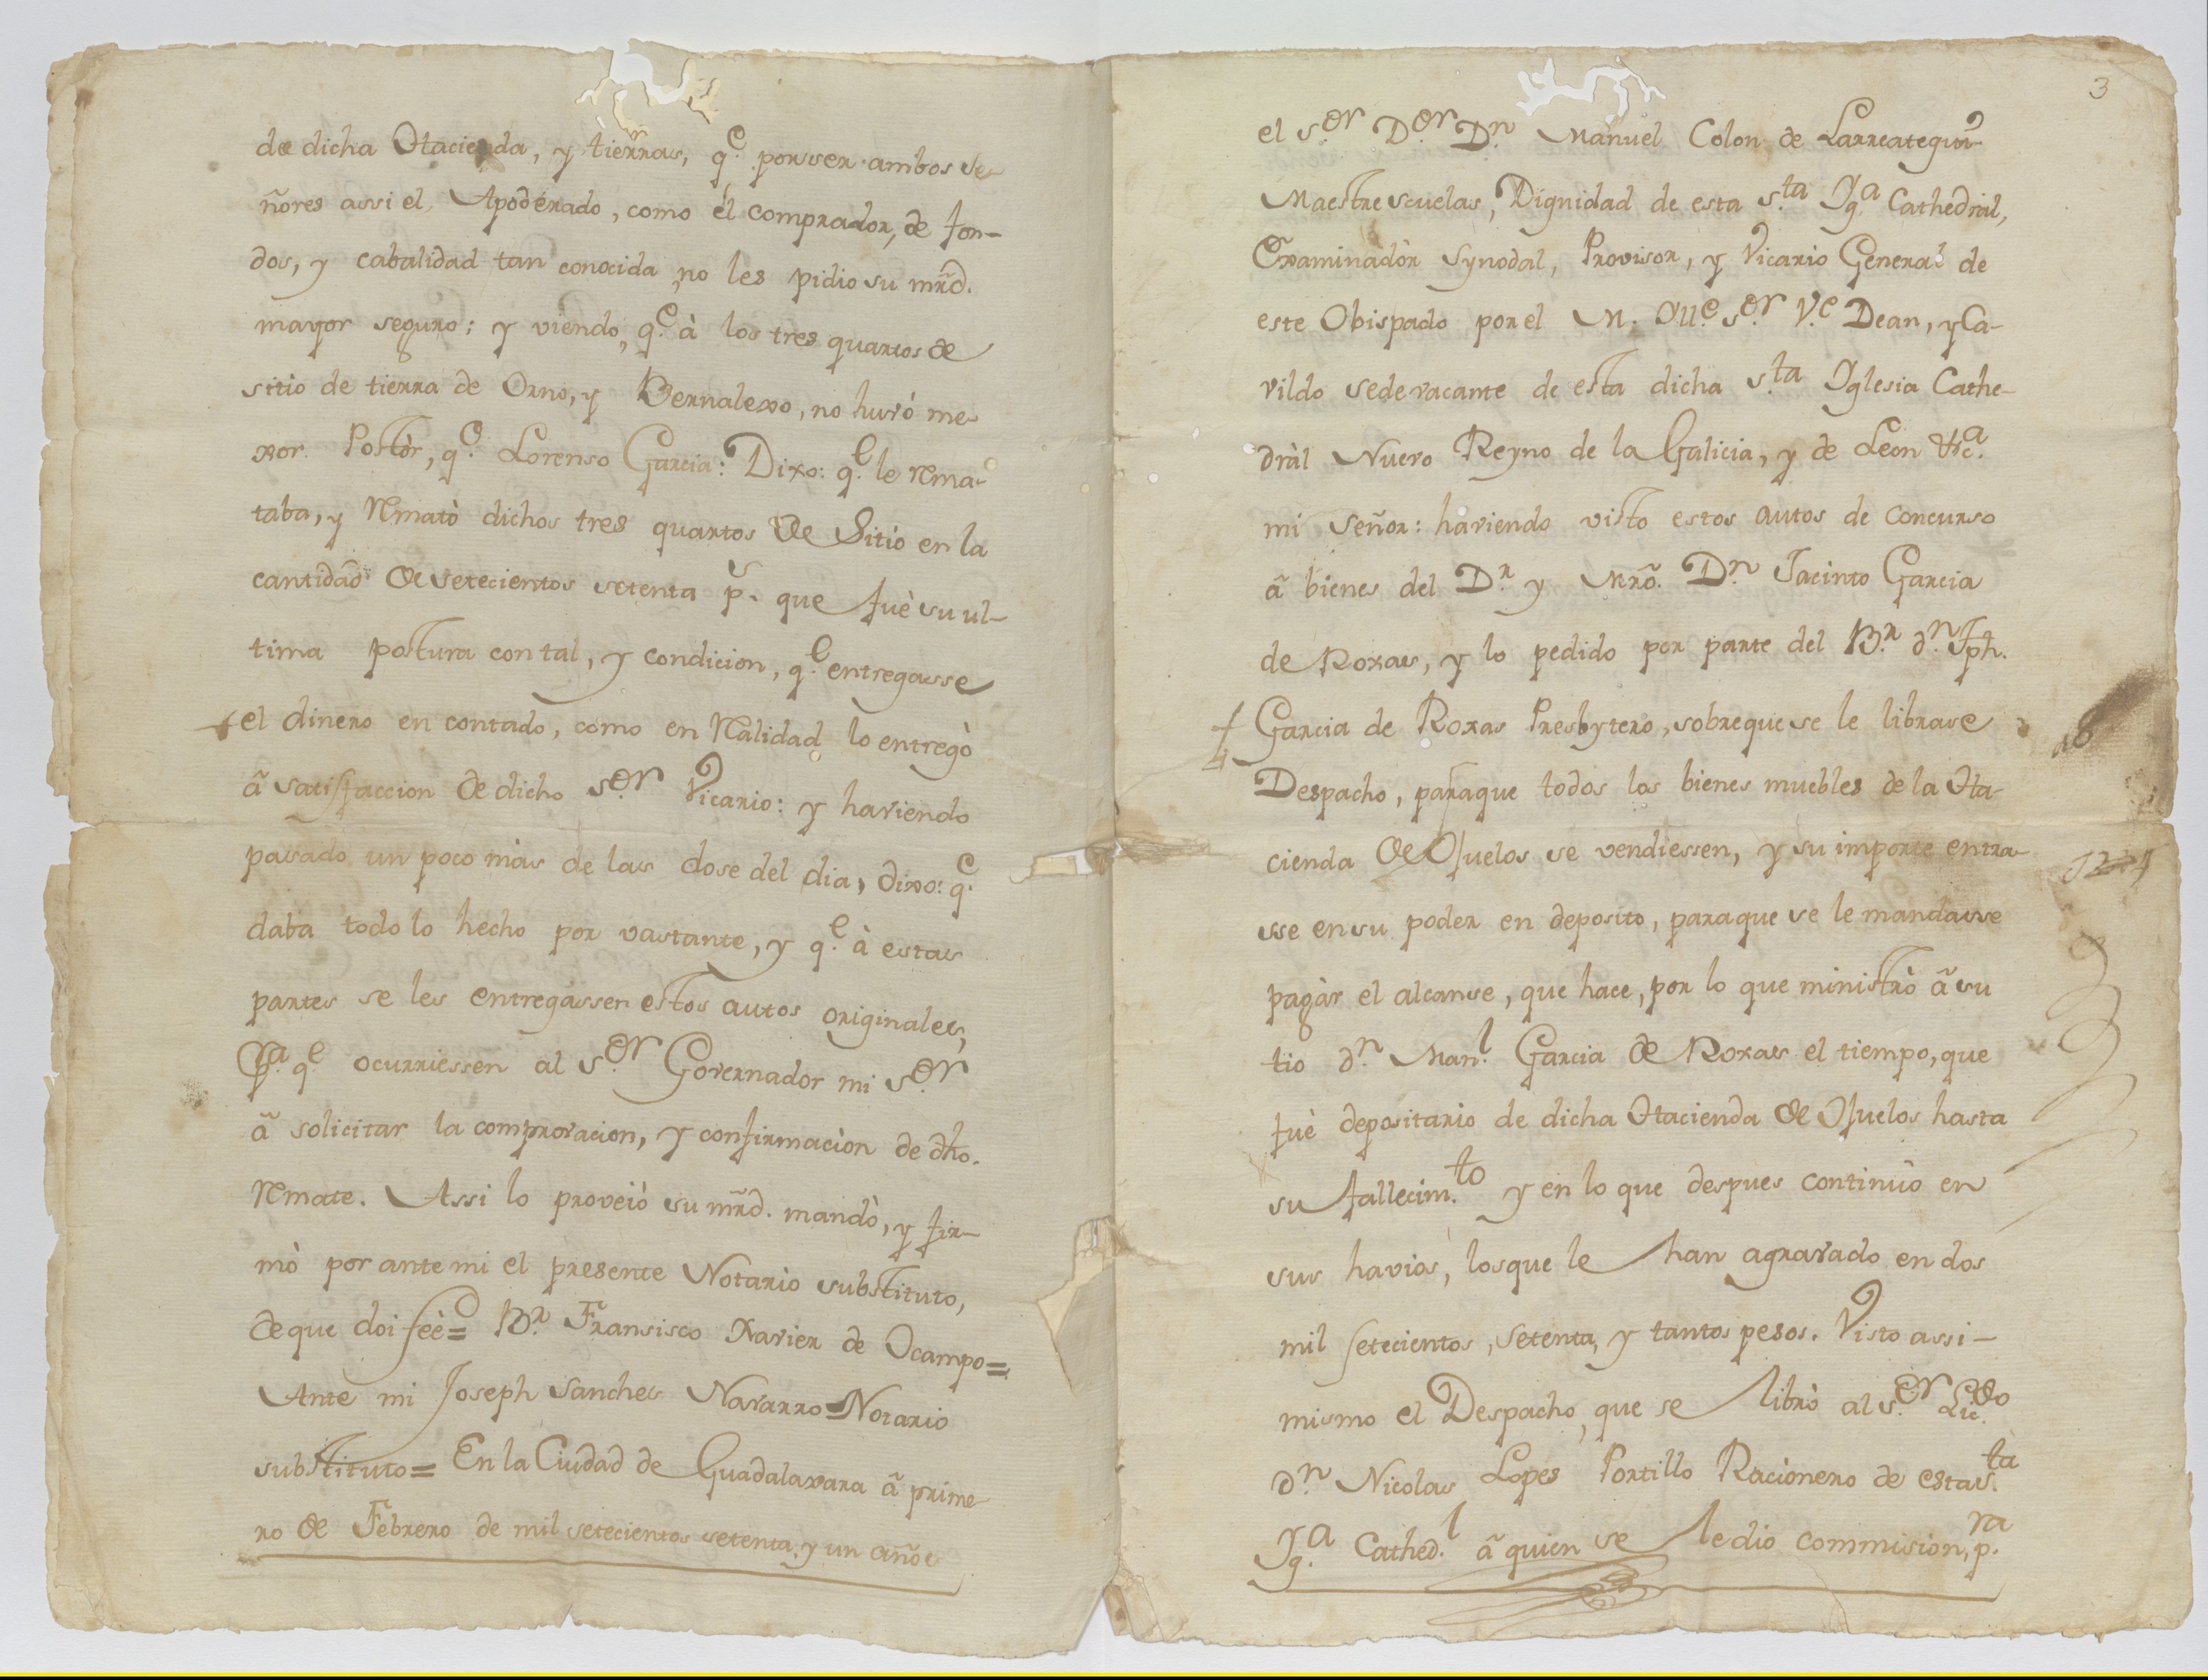 de dicha Hacienda, y tierras, q.e por ser ambos se-
ñores assi el Apoderado, como él comprador, de fon-
dos, y cabalidad tan conocida, no les pidio su mrd.
mayor seguro: y viendo, q.e à los tres quartos de
sitio de tierra de Orno, y Bernalexo, no huvó me-
xor Postòr, q.e Lorenso Garcia: Dixo: q.e le rema-
taba, y Rematò dichos tres quartos de Sitio en la
cantidad de setecientos setenta p.s que fuè su ul-
tima postura con tal, y condicion, q.e entregasse
el dinero en contado, como en Realidad lo entregò
â satisfaccion de dicho s.or Vicario: y haviendo
pasado un poco màs de las dose del dia, dixo: q.e
daba todo lo hecho por vastante, y q.e à estas
partes se les entregassen estos autos originales,
p.a q.e ocurriessen al s.or Governador mi s.or
â solicitar la comprovacion, y confirmaciòn de dho.
Remate. Assi lo proveiò su mrd. mandò, y fir-
mò por ante mi el presente Notario substituto,
de que doi feè= B.r Fransisco Xavier de Ocampo=
Ante mi Joseph Sanches Navarro=Notario
substituto= En la Ciudad de Guadalaxara â prime-
ro de Febrero de mil setecientos setenta, y un años
3
el s.or D.or D.n Manuel Colon de Larreategui
Maestre scuelas, Dignidad de esta s.ta Yg.a Cathedral,
Examinadòr Synodal, Provisor, y Vicario General de
este Obispado por el M. Ill.e s.or V.e Dean, y Ca-
vildo sede vacante de esta dicha s.ta Yglesia Cathe-
dràl Nuevo Reyno de la Galicia, y de Leon &c.a
mi señor: haviendo visto estos autos de concurso
â bienes del D.r y Mrô. D.n Jacinto Garcia
de Roxas, y lo pedido por parte del B.r d.n Jph.
Garcia de Roxas Presbytero, sobre que se le librase
Despacho, para que todos los bienes muebles de la Ha-
cienda de Ojuelos se vendiessen, y su importe entra-
sse en su poder en deposito, para que se le mandasse
pagàr el alcanse, que hace, por lo que ministrò â su
tio d.n Man.l Garcia de Roxas el tiempo, que
fuè depositario de dicha Hacienda de Ojuelos hasta
su fallecim.to y en lo que despues continuò en
sus haviòs, los que le han agravado en dos
mil setecientos, setenta, y tantos pesos. Visto assi-
mismo el Despacho, que se librò al s.or Lic.do
d.n Nicolas Lopes Portillo Racionero de esta s.ta
Yg.a Cathed.l â quien se le dio commision, p.ra